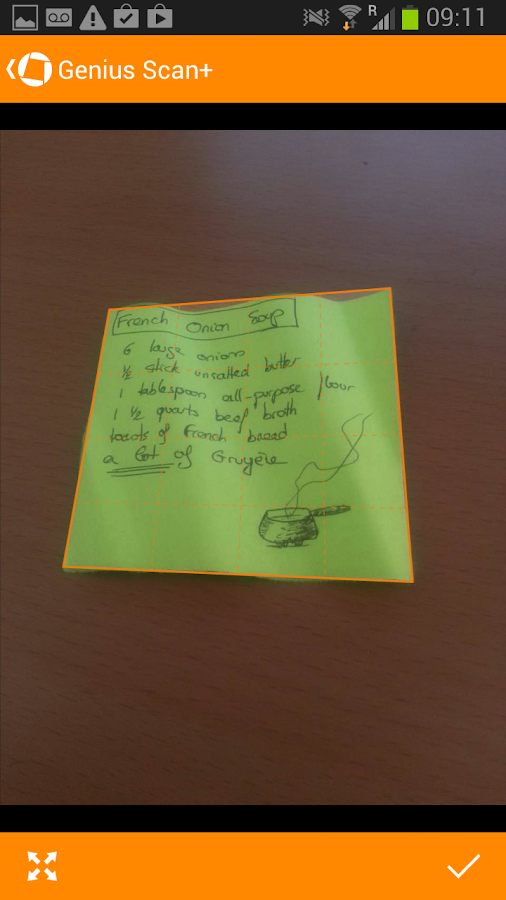 R 09:11
Genius Scan+
French Onion Soup
6 large onions
1/2 stick unsalted butter
1 tablespoon all-purpose flour
1 1/2 quarts beef broth
toasts of French bread
a lot of Gruyère